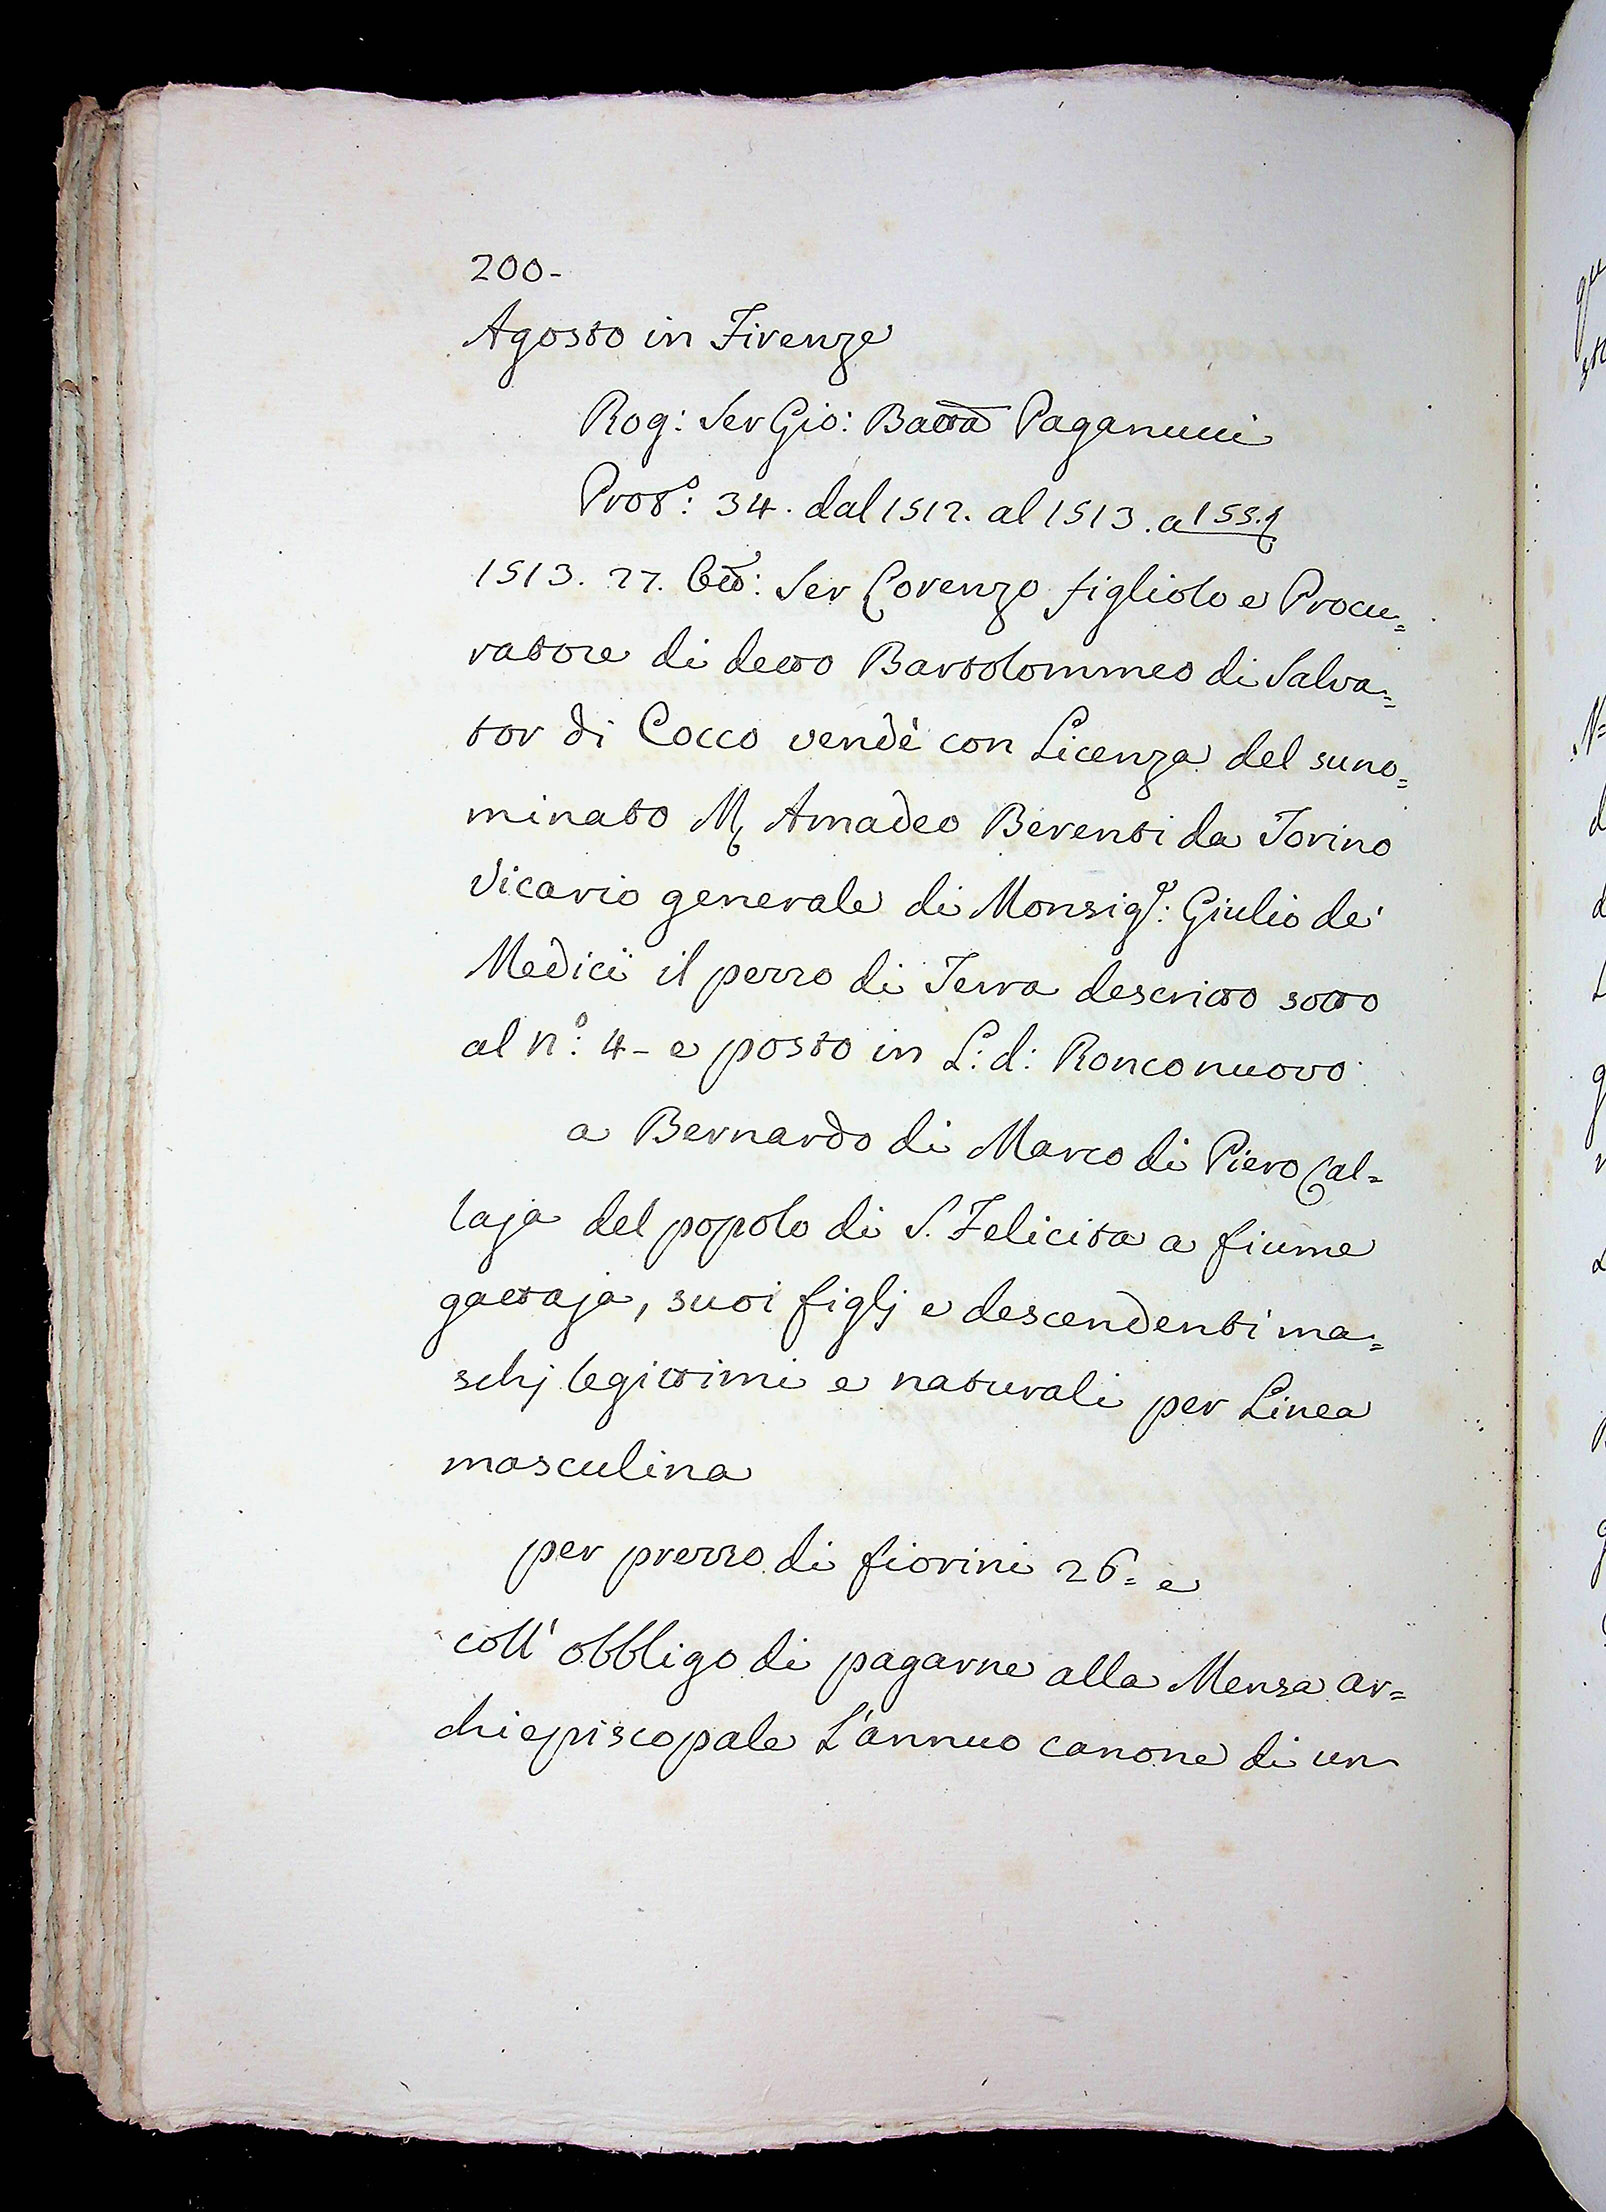 200-
Agosto in Firenze
Rog: Ser Gio: Batta Paganucci
Prot.º: 34. dal 1512. al 1513. a 155.
1513. 27. Ser Lorenzo figliolo e Procu=
ratore di detto Bartolommeo di Salva=
tor di Cocco vendè con Licenza del suno=
minato M. Amadeo Berenti da Torino
Vicario generale di Monsig.r: Giulio de'
Medici il pezzo di Terra descritto sotto
al n.º: 4- e posto in L: d: Ronconuovo
a Bernardo di Marco di Piero Cal=
laja del popolo di S. Felicita a fiume
gattaja, suoi figlj e descendenti ma=
schj legittimi e naturali per Linea
masculina
per prezzo di fiorini 26= e
coll' obbligo di pagarne alla Mensa ar=
chiepiscopale L'annuo canone di un